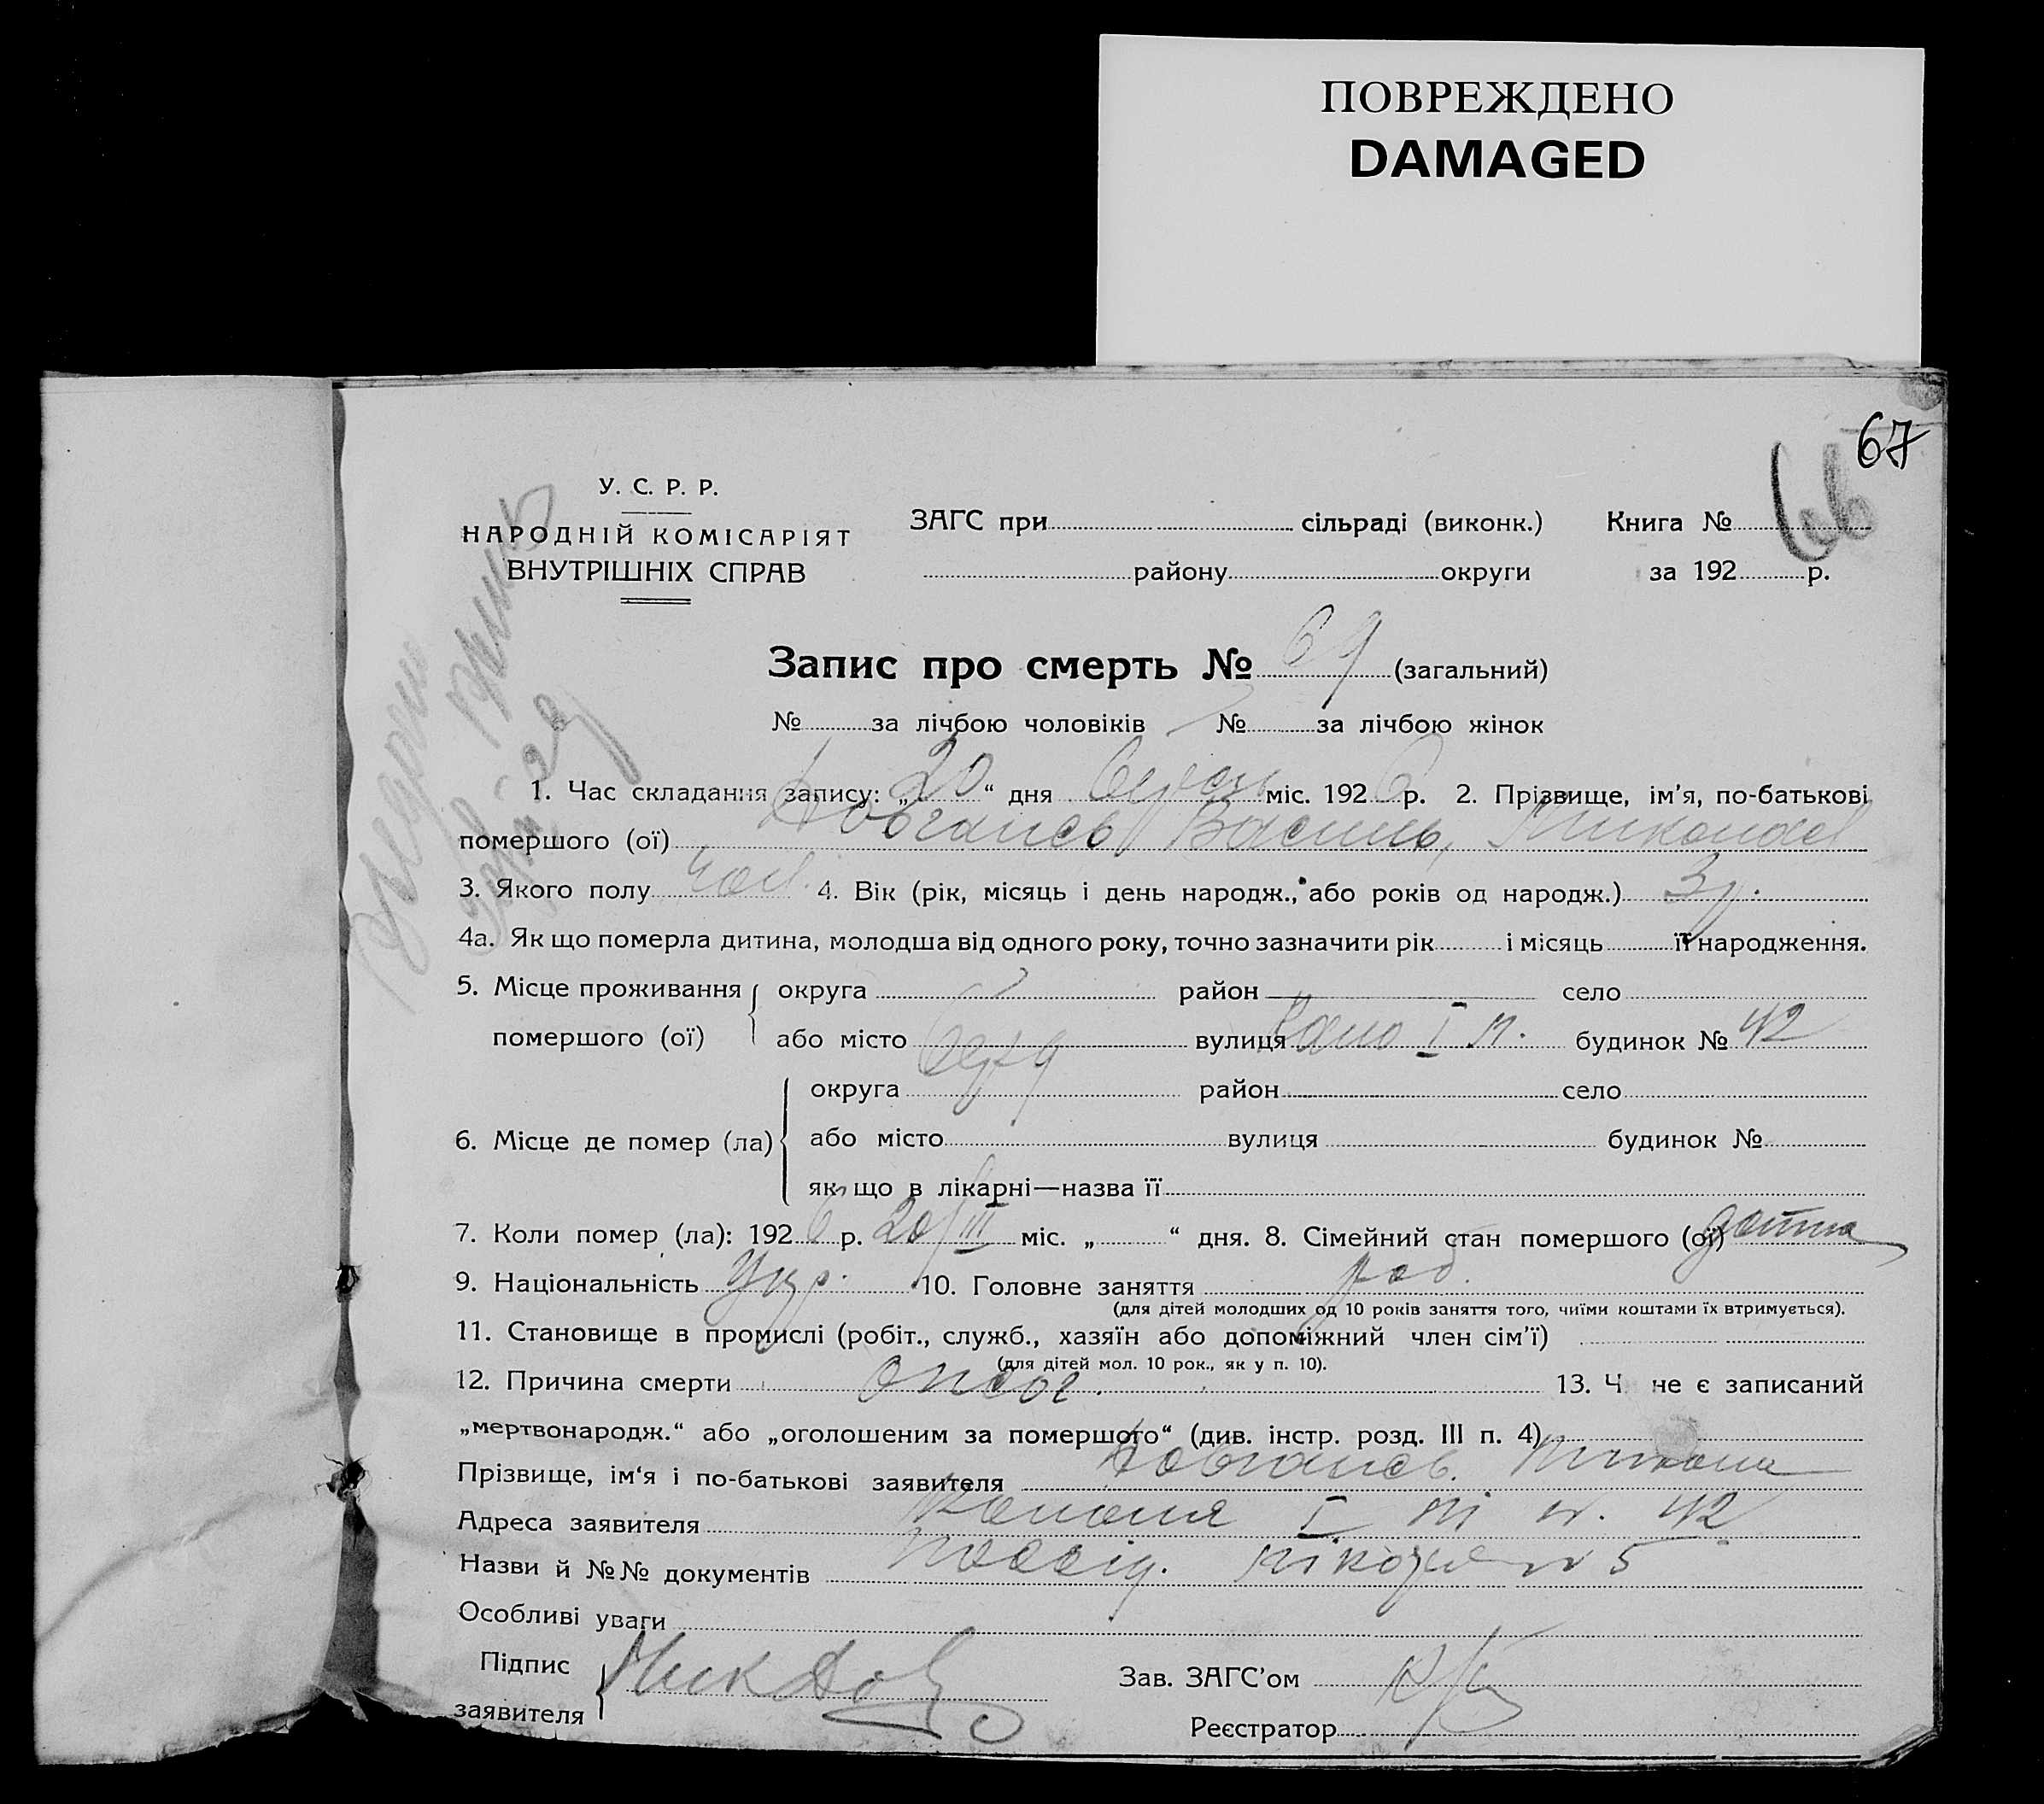 ПОВРЕЖДЕНО
DAMAGED
67
66
У. С. Р. Р.
НАРОДНІЙ КОМІСАРІЯТ
ВНУТРІШНІХ СПРАВ
ЗАГС при сільраді (виконк.) Книга №
району округи за 192 р.
Запис про смерть № 69 (загальний)
№ за лічбою чоловіків № за лічбою жінок
1. Час складання запису: „20“ дня міс. 1926 р. 2. Прізвище, ім’я, по-батькові
помершого (ої) Довгань Василь, Миколаєв
3. Якого полу чол. 4. Вік (рік, місяць і день народж., або років од народж.) 3 р.
4а. Як що померла дитина, молодша від одного року, точно зазначити рік і місяць її народження.
5. Місце проживання округа район село
помершого (ої) або місто вулиця І П. будинок № 42
округа район село
6. Місце де помер (ла) або місто вулиця будинок №
як що в лікарні—назва її
7. Коли помер (ла): 1926 р. 20/III міс. „ “ дня. 8. Сімейний стан помершого (ої) дитина
9. Національність Укр. 10. Головне заняття роб.
(для дітей молодших од 10 років заняття того, чиїми коштами їх втримується).
11. Становище в промислі (робіт., служб., хазяїн або допоміжний член сім’ї)
(для дітей мол. 10 рок., як у п. 10).
12. Причина смерти опiог. 13. Ч не є записаний
„мертвонародж.“ або „оголошеним за помершого“ (див. інстр. розд. III п. 4)
Прізвище, ім‘я і по-батькові заявителя Довгань Микола
Адреса заявителя І 42
Назви й №№ документів посвід. № 5
Особливі уваги
Підпис Мик Дов Зав. ЗАГС’ом
заявителя
Реєстратор